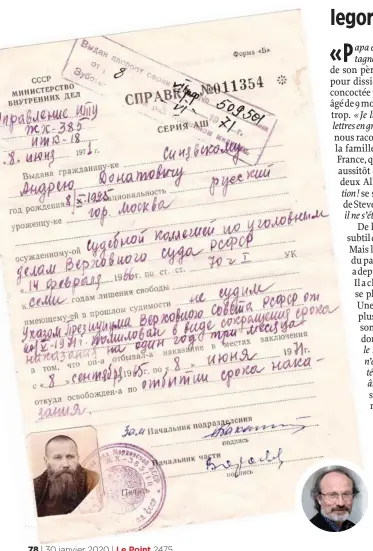 legor
«Papa
tagn
de son pèr
pour dissi
concoctée
âgé de 9 mo
trop. «Je l
lettres en gr
nous raco
la famille
France, q
aussitôt
deux Al
tion! se s
de Steve
il ne s'ét
De l
subtil
Mais l
du pa
a dep
Il a cl
se pl
Une
plus
son
don
Форма «Б»
СССР
МИНИСТЕРСТВО
ВНУТРЕННИХ ДЕЛ
Управление ИТУ
ЖХ-385
ИТК-18
8 июня 1971 г.
Выдан паспорт
509501
СПРАВКА №011354
СЕРИЯ АШ
Выдана гражданину-ке Синявскому
Андрею Донатовичу
год рождения 8/X-1925 национальность русский
уроженцу-ке гор. Москва
осужденному-ой судебной коллегией по уголовным
делам Верховного суда РСФСР
«14 февраля 1966 г. по ст. ст. 70 ч I УК
к семи годам лишения свободы
имеющему-ей в прошлом судимости не судим
Указом Президиума Верховного Совета РСФСР от
V-1971г. Помилован в виде сокращения срока
наказания на один год три месяца
в том, что он-а отбывал-а наказание в местах заключения
с «8» сентября 1965 г. по «8» июня 1971 г.
откуда освобожден-а по отбытии срока нака-
зания.
Зам Начальник подразделения
подпись
Начальник части
подпись
Печать
78 | 30 janvier 2020 | Le Point 2475